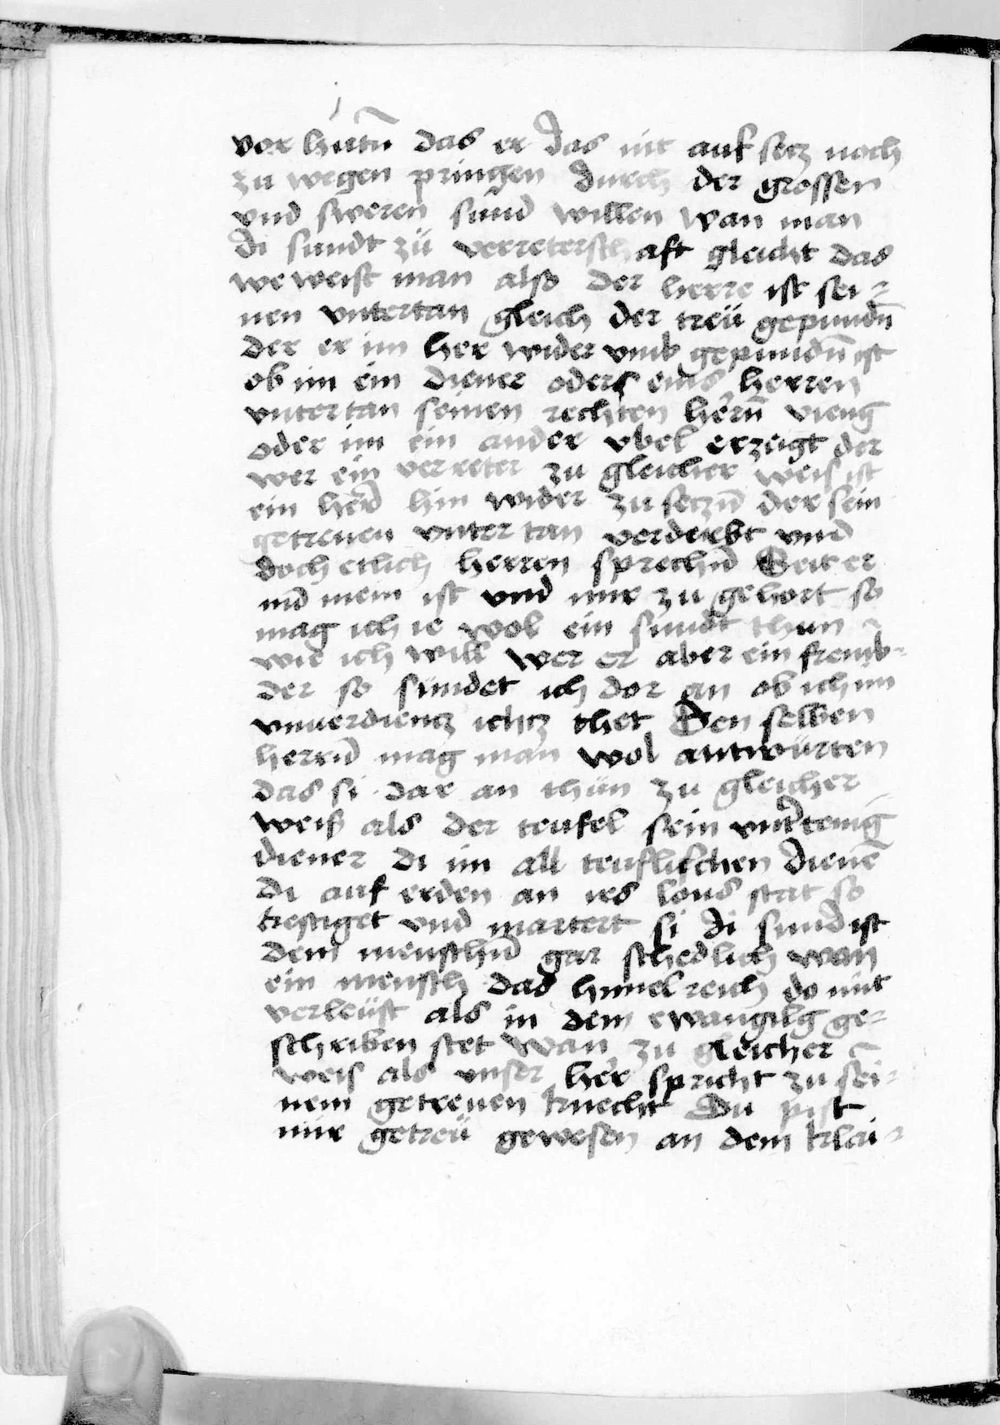 vor hutñ das er das nit auf secz noch
zu wegen pringen durch der grossen
vnd sweren sünd willen wan man
di sundt zü verreterschaft gleicht das
weweist man also der herre ist sei-
nen vntertan gleich der treü gepundñ
der er im her wider vmb gepundñ ist
ob im ein diener oder eins herren
vntertan seinen rechten herñ vieng
oder im ein ander vbel erzeigt der
wer ein verreter zu gleicher weis ist
ein herr hin wider zu seczñ der sein
getreuen vnter tan verderbt vnd
doch etlich herren sprechñ Seit er
nu mein ist vnd mir zu gehort so
mag ich ie wol ein sundt thun
wie ich will wer er aber ein fremb-
der so sündet ich dor an ob ich im
vnuerdiencz ichcz thet Den selben
herrñ mag man wol antwürten
das si dar an thün zu gleicher
weiß als der teufel sein vntertenig
diener di im all teuflischen dienē
di auf erden an irs lons stat so
kestiget vnd martert si di sund ist
dem menschñ gar schedlich wan
ein mensch das himel reich do mit
verleüst als in dem ewangilg ge-
schriben stet wan zu gleicher
weis als vnser her spricht zu sei-
nem getreuen knecht Du pist
mir getreü gewesen an dem klai-